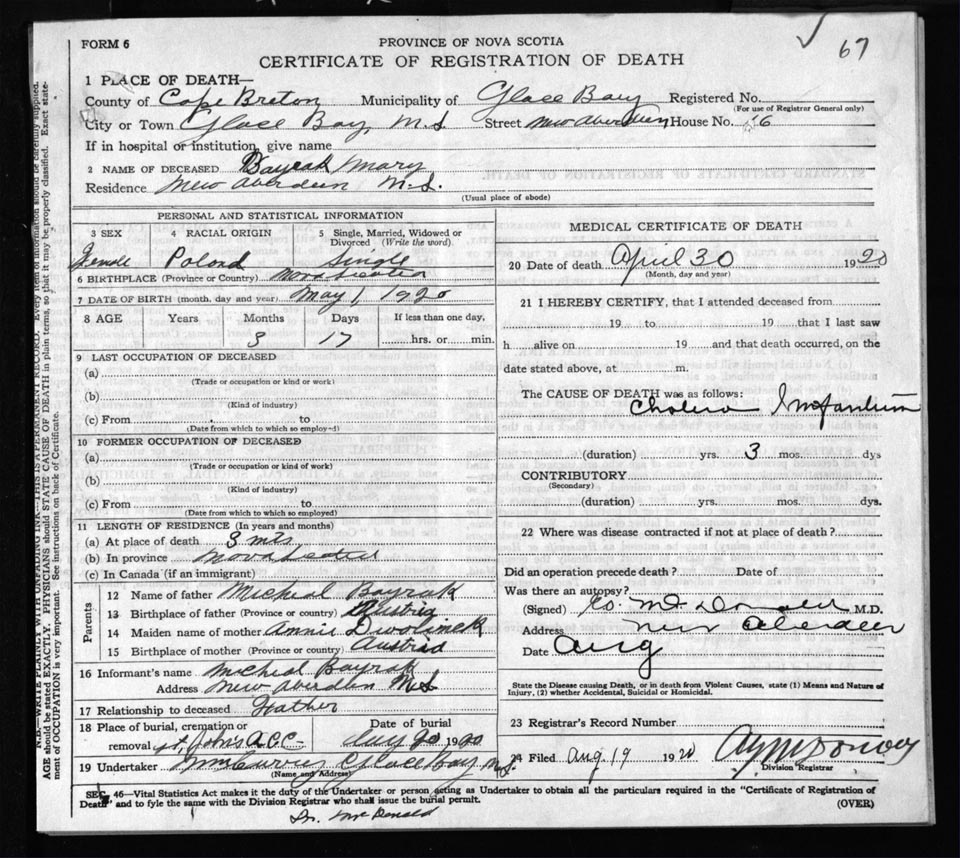 67
FORM 6
PROVINCE OF NOVA SCOTIA
CERTIFICATE OF REGISTRATION OF DEATH
1 PLACE OF DEATH—
County of Cape Breton Municipality of Glace Bay Registered No.
(For use of Registrar General only)
City or Town Glace Bay, N.S. Street New Aberdeen House No.
If in hospital or institution, give name
2 NAME OF DECEASED Mary
Residence New Aberdeen N.S.
(Usual place of abode)
PERSONAL AND STATISTICAL INFORMATION
3 SEX 4 RACIAL ORIGIN 5 Single, Married, Widowed or Divorced (Write the word).
Female Poland Single
6 BIRTHPLACE (Province or Country) Nova Scotia
7 DATE OF BIRTH (month, day and year) May 1, 1920
8 AGE Years Months Days If less than one day,
3 17 hrs. or min.
9 LAST OCCUPATION OF DECEASED
(a)
(Trade or occupation or kind or work)
(b)
(Kind of industry)
(c) From to
(Date from which to which so employed)
10 FORMER OCCUPATION OF DECEASED
(a)
(Trade or occupation or kind of work)
(b)
(Kind of industry)
(c) From to
(Date from which to which so employed)
11 LENGTH OF RESIDENCE (In years and months)
(a) At place of death 3 mts
(b) In province Nova Scotia
(c) In Canada (if an immigrant)
Parents
12 Name of father Micheal Bayrak
13 Birthplace of father (Province or country) Austria
14 Maiden name of mother Annie
15 Birthplace of mother (Province or country) Austria
16 Informant's name Micheal Bayrak
Address New Aberdeen N.S
17 Relationship to deceased Father
18 Place of burial, cremation or removal St. John's Date of burial Aug 20 1920
19 Undertaker Wm Currie Glace Bay N.S.
(Name and Address)
MEDICAL CERTIFICATE OF DEATH
20 Date of death April 30 1920
(Month, day and year)
21 I HEREBY CERTIFY, that I attended deceased from
19 to 19 that I last saw
h alive on 19 and that death occurred, on the
date stated above, at m.
The CAUSE OF DEATH was as follows:
Cholera Infantum
(duration) yrs. 3 mos. dys
CONTRIBUTORY
(Secondary)
(duration) yrs. mos. dys.
22 Where was disease contracted if not at place of death?
Did an operation precede death? Date of
Was there an autopsy?
(Signed) McDonald M.D.
Address New Aberdeen
Date Aug
State the Disease causing Death, or in death from Violent Causes, state (1) Means and Nature of
Injury, (2) whether Accidental, Suicidal or Homicidal.
23 Registrar's Record Number
24 Filed Aug 19 1920
Division Registrar
SEC. 46—Vital Statistics Act makes it the duty of the Undertaker or person acting as Undertaker to obtain all the particulars required in the "Certificate of Registration of
Death" and to fyle the same with the Division Registrar who shall issue the burial permit. (OVER)
Dr. McDonald
N.B.—WRITE PLAINLY WITH UNFADING INK—THIS IS A PERMANENT RECORD. Every item of information should be carefully supplied.
AGE should be stated EXACTLY. PHYSICIANS should STATE CAUSE OF DEATH in plain terms, so that it may be properly classified. Exact state-
ment of OCCUPATION is very important. See instructions on back of Certificate.